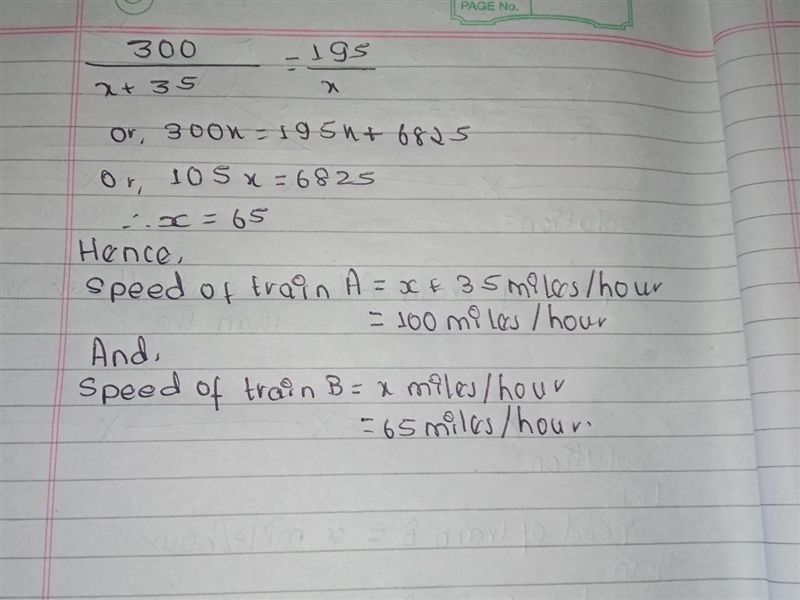 PAGE No.
300/x+35 = 195/x
Or, 300x = 195x + 6825
Or, 105x = 6825
∴ x = 65
Hence,
Speed of train A = x + 35 miles/hour
= 100 miles/hour
And,
Speed of train B = x miles/hour
= 65 miles/hour.